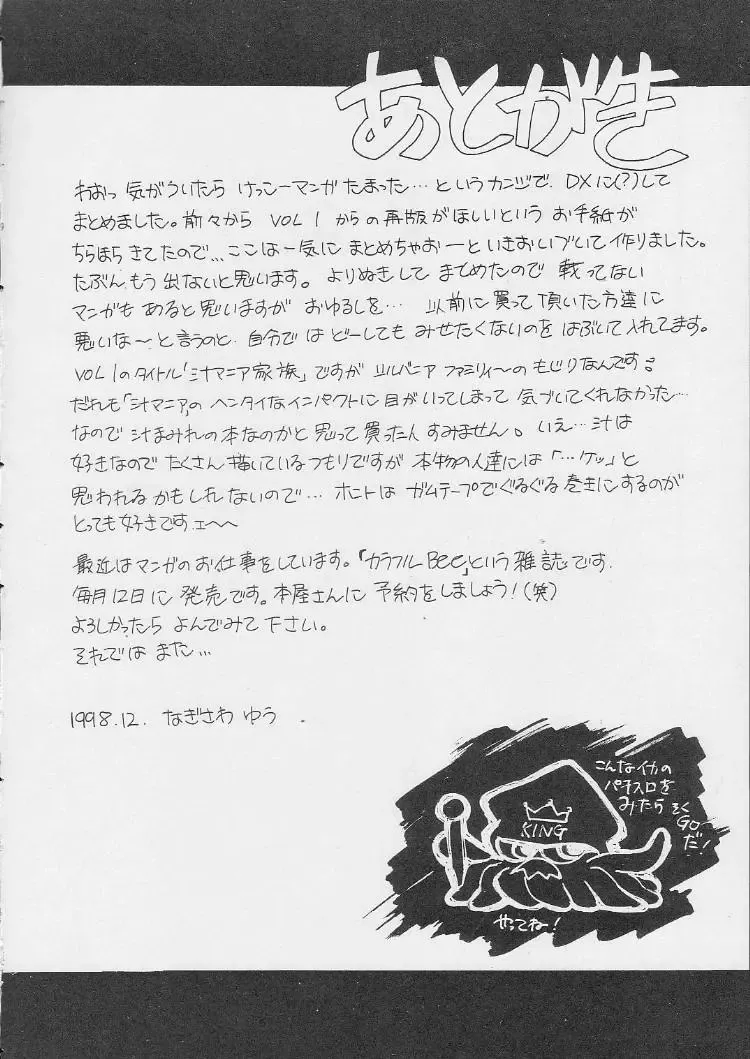 あとがき
わおっ 気がついたら けっこーマンガ たまった…というカンジで、DXに(?)して
まとめました。前々から VOL 1 からの再版がほしいという お手紙が
ちらほら きてたので… ここは一気に まとめちゃおーといきおいづいて作りました。
たぶん、もう 出ないと思います。よりぬきして まとめたので 載ってない
マンガも あると思いますが おゆるしを… 以前に買って頂いた方達に
悪いな〜と言うのと、自分では どーしても みせたくないのを はぶいて入れてます。
VOL 1のタイトル「汁マニア家族」ですが シルバニア ファミリィ〜の もじりなんです。
だれも「汁マニア」の ヘンタイなインパクトに目がいってしまって 気づいてくれなかった…
なので 汁まみれの本なのかと思って買った人すみません。いえ…汁は
好きなので たくさん描いているつもりですが 本物の人達には「…ケッ」と
思われる かもしれないので… ホントは ガムテープでぐるぐる巻きにするのが
とっても好きですェ〜〜
最近はマンガのお仕事をしています。「カラフルBee」という雑誌です。
毎月12日に 発売です。本屋さんに 予約をしましょう!(笑)
よろしかったら よんでみて下さい。
それでは また…
1998.12. なぎさわ ゆう.
こんなイカの
パチスロを
みたら そく
GO
だ!
KING
やってね!